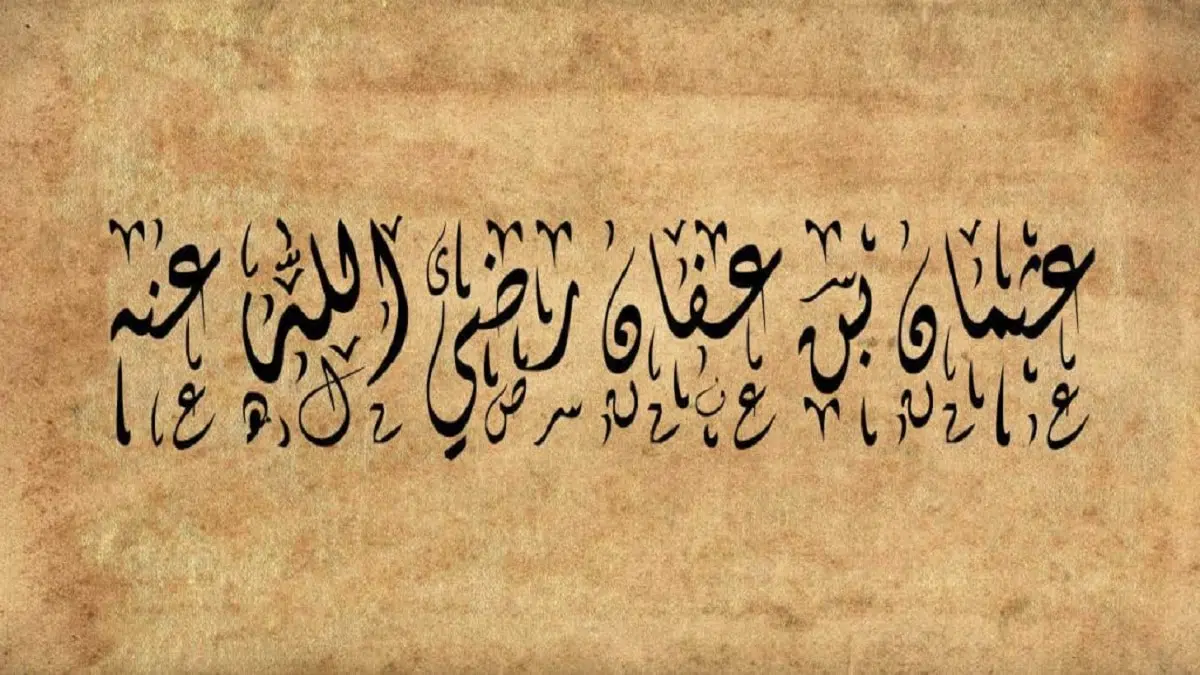 عثمان بن عفان رضي اللّه عنه